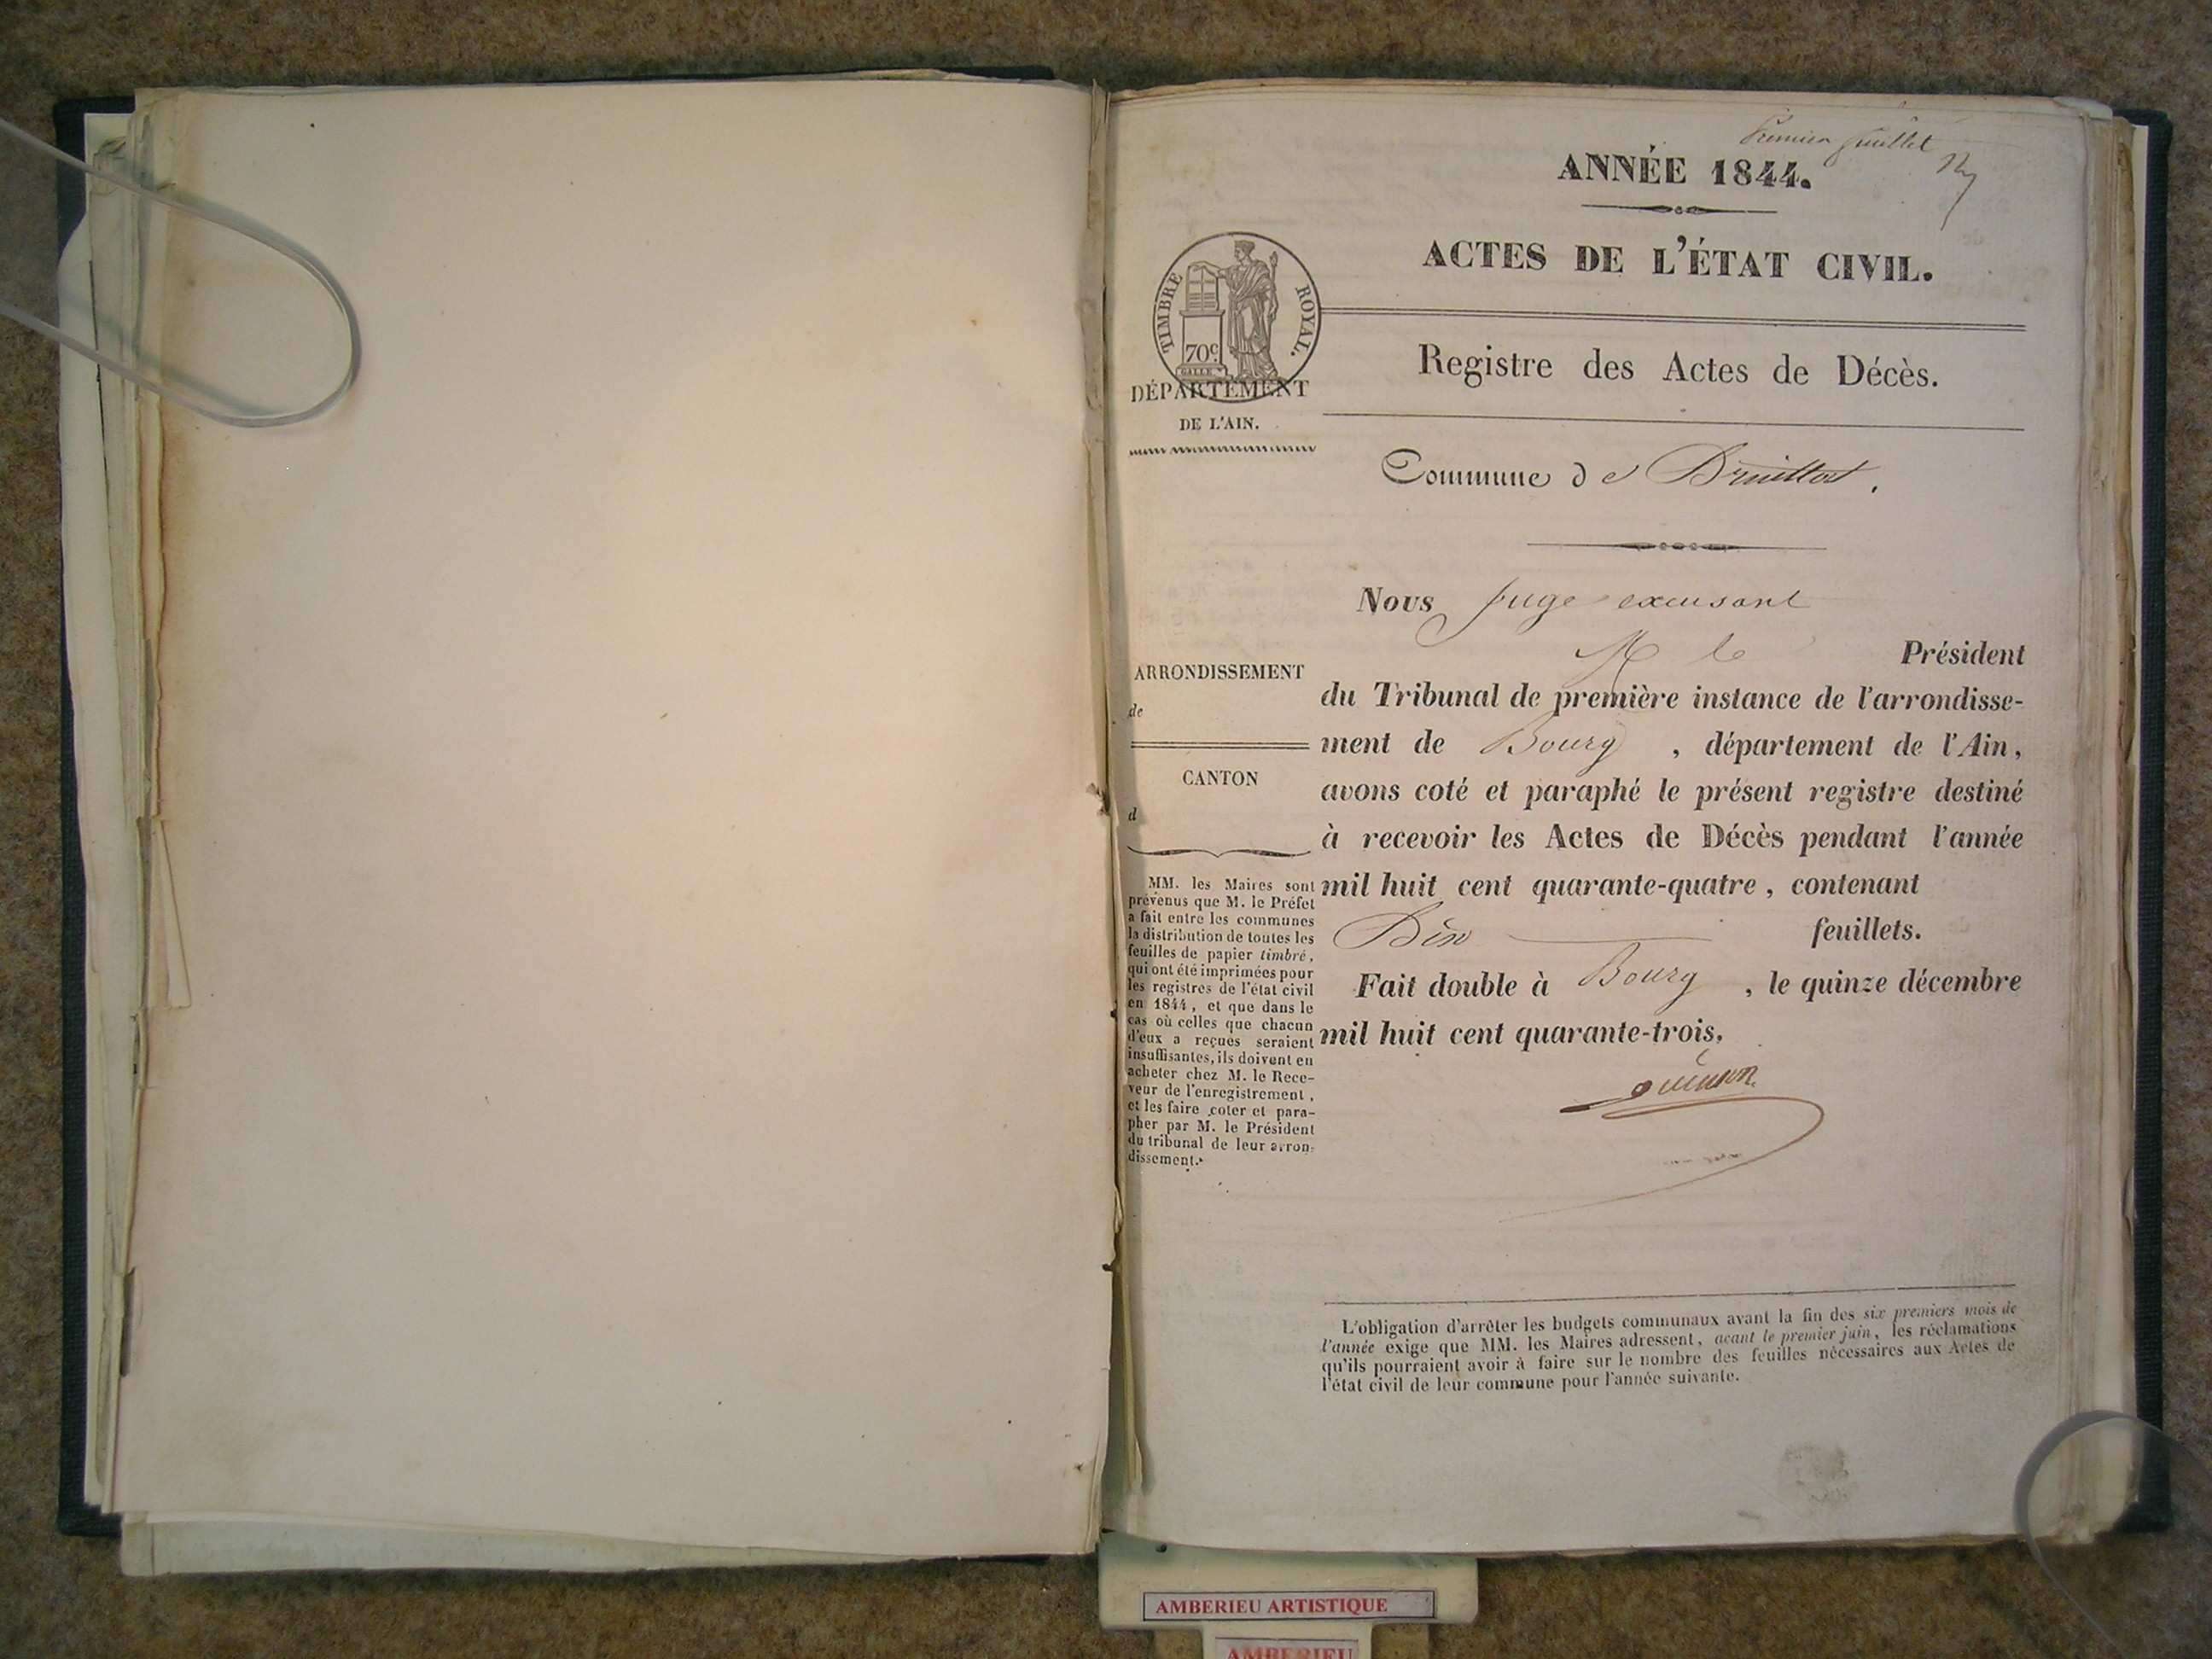 Premier feuillet
ANNÉE 1844.
ACTES DE L'ÉTAT CIVIL.
TIMBRE ROYAL.
70c
GALLE
DÉPARTEMENT
DE L'AIN.
Registre des Actes de Décès.
Commune de Druillat.
Nous Juge excusant
M le Président
du Tribunal de première instance de l'arrondisse-
ment de Bourg, département de l'Ain,
avons coté et paraphé le présent registre destiné
à recevoir les Actes de Décès pendant l'année
mil huit cent quarante-quatre, contenant
Dix feuillets.
Fait double à Bourg, le quinze décembre
mil huit cent quarante-trois,
ARRONDISSEMENT
de
CANTON
d
MM. les Maires sont
prévenus que M. le Préfet
a fait entre les communes
la distribution de toutes les
feuilles de papier timbré,
qui ont été imprimées pour
les registres de l'état civil
en 1844, et que dans le
cas où celles que chacun
d'eux a reçues seraient
insuffisantes, ils doivent en
acheter chez M. le Rece-
veur de l'enregistrement,
et les faire coter et para-
pher par M. le Président
du tribunal de leur arron-
dissement.
L'obligation d'arrêter les budgets communaux avant la fin des six premiers mois de
l'année exige que MM. les Maires adressent, avant le premier juin, les réclamations
qu'ils pourraient avoir à faire sur le nombre des feuilles nécessaires aux Actes de
l'état civil de leur commune pour l'année suivante.
AMBERIEU ARTISTIQUE
AMBERIEU